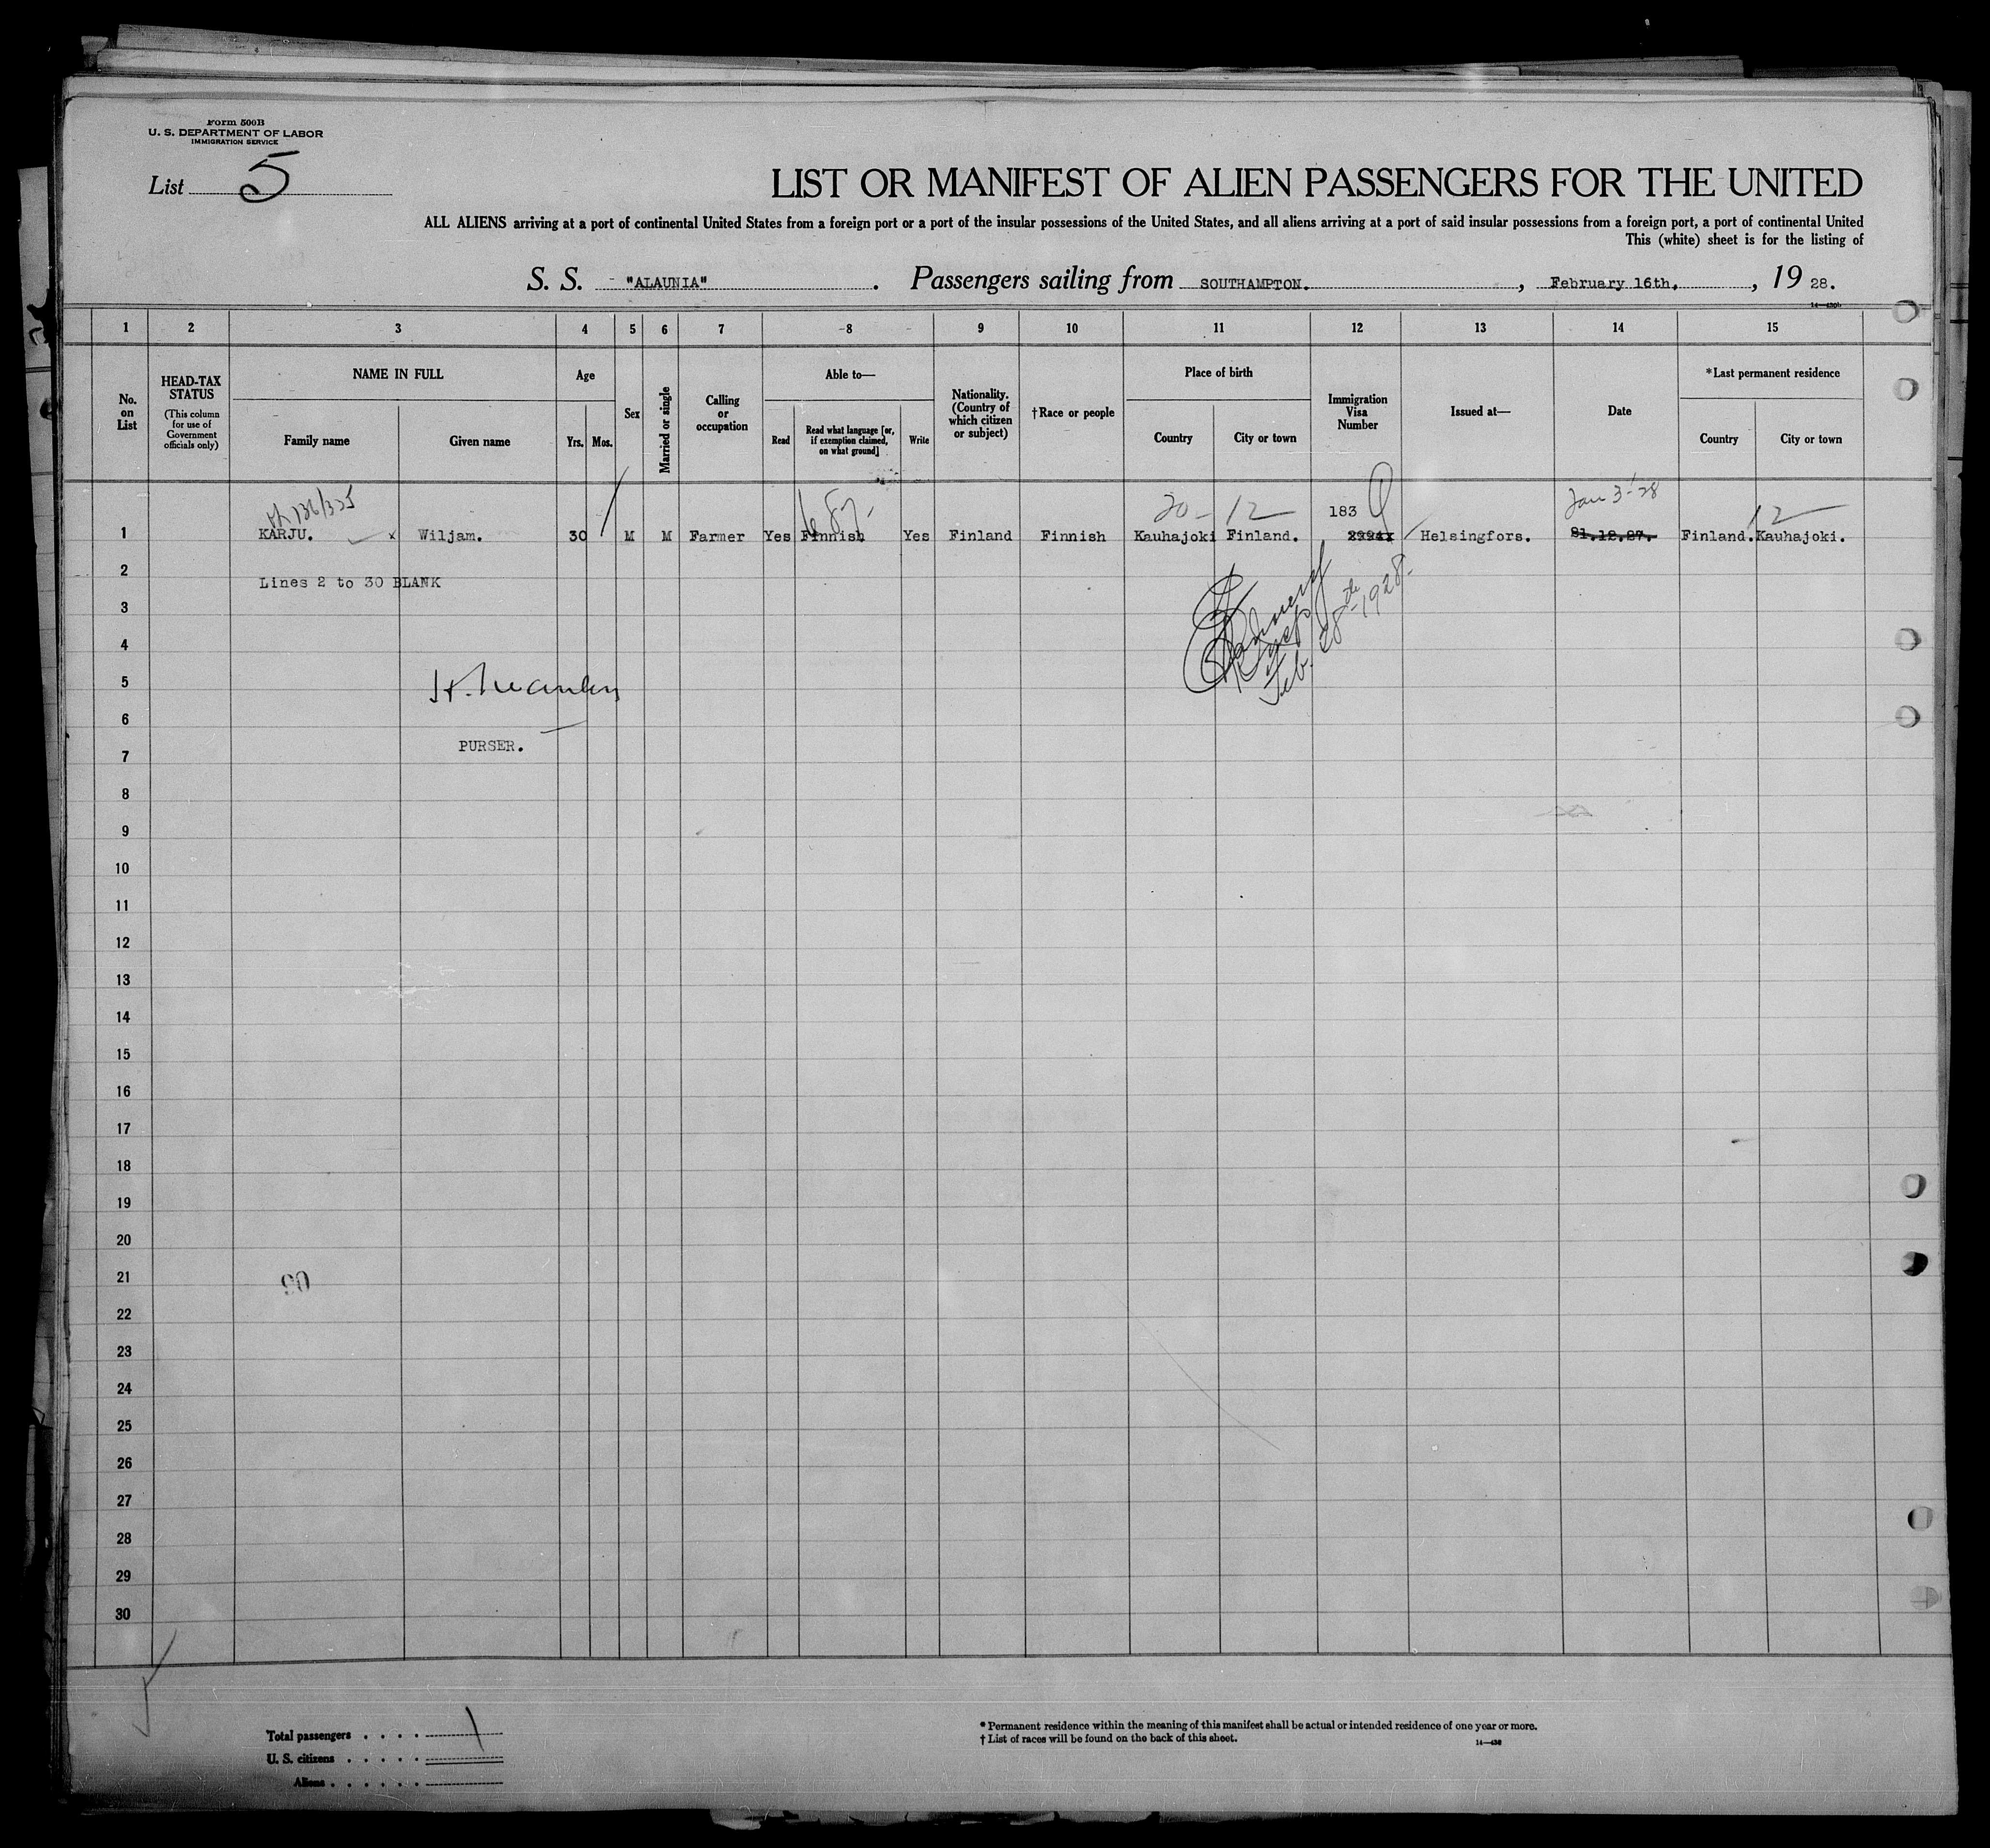 Form 500B
U. S. DEPARTMENT OF LABOR
IMMIGRATION SERVICE
List 5
LIST OR MANIFEST OF ALIEN PASSENGERS FOR THE UNITED
ALL ALIENS arriving at a port of continental United States from a foreign port or a port of the insular possessions of the United States, and all aliens arriving at a port of said insular possessions from a foreign port, a port of continental United
This (white) sheet is for the listing of
S. S. "ALAUNIA" . Passengers sailing from SOUTHAMPTON. , February 16th, , 19 28.
1 2 3 4 5 6 7 8 9 10 11 12 13 14 15
No. on List
HEAD-TAX STATUS
(This column for use of Government officials only)
NAME IN FULL
Family name Given name
Age
Yrs. Mos.
Sex
Married or single
Calling or occupation
Able to—
Read
Read what language [or, if exemption claimed, on what ground]
Write
Nationality. (Country of which citizen or subject)
†Race or people
Place of birth
Country City or town
Immigration Visa Number
Issued at—
Date
*Last permanent residence
Country City or town
136/335 20- 12 183 Jan 3-28 12
1 KARJU. x Wiljam. 30 M M Farmer Yes Finnish Yes Finland Finnish Kauhajoki Finland. Helsingfors. 31.12.27. Finland. Kauhajoki.
2 Lines 2 to 30 BLANK
3
4
Feb. 28th 1928.
5
6
PURSER.
7
8
9
10
11
12
13
14
15
16
17
18
19
20
21
22
23
24
25
26
27
28
29
30
Total passengers . . . . 1
U. S. citizens . . . . .
Aliens . . . . . .
* Permanent residence within the meaning of this manifest shall be actual or intended residence of one year or more.
† List of races will be found on the back of this sheet.